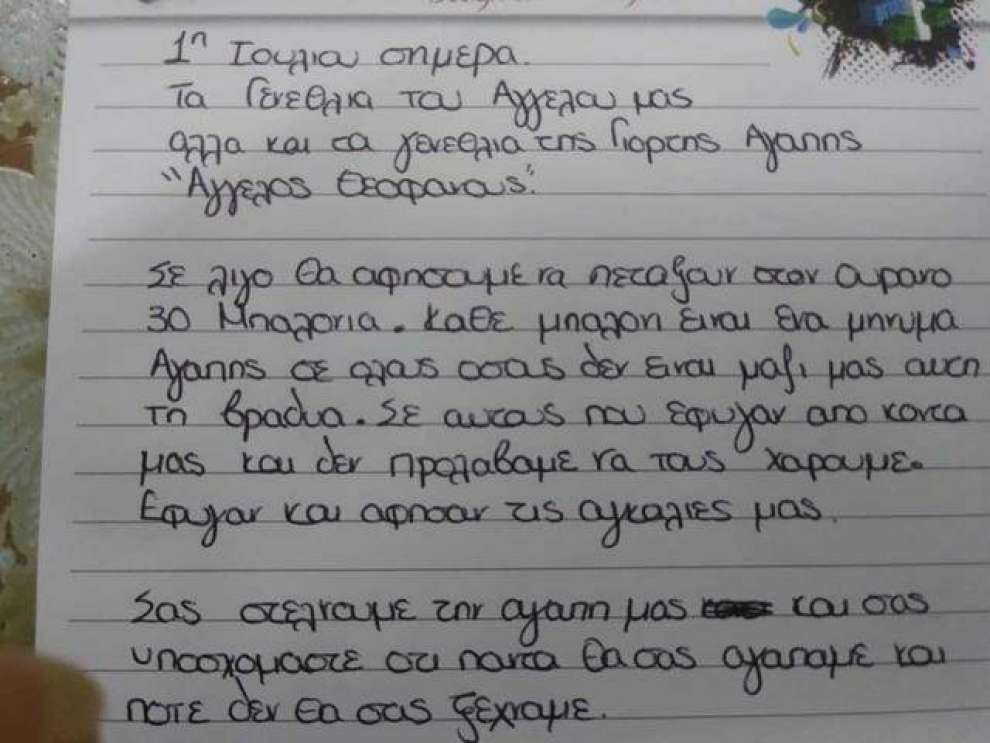 1η Ιουλιου σημερα.
Τα Γενεθλια του Αγγελου μας
αλλα και τα γενεθλια της Γιορτης Αγαπης
"Αγγελος Θεοφανους".
Σε λιγο θα αφησουμε να πεταξουν στον ουρανο
30 Μπαλονια. Καθε μπαλονι ειναι ενα μηνυμα
Αγαπης σε ολους οσους δεν ειναι μαζι μας αυτη
τη βραδυα. Σε αυτους που εφυγαν απο κοντα
μας και δεν προλαβαμε να τους χαρουμε.
Εφυγαν και αφησαν τις αγκαλιες μας.
Σας στελνουμε την αγαπη μας και σας
υποσχομαστε οτι παντα θα σας αγαπαμε και
ποτε δεν θα σας ξεχναμε.